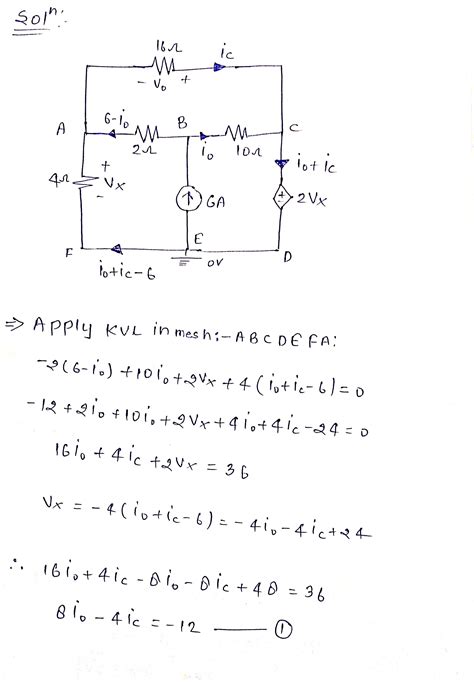 Solⁿ:
16Ω
ic
- Vo +
A
6-io
B
C
2Ω
io
10Ω
io+ic
4Ω
+
Vx
-
6A
2Vx
F
E
D
0V
io+ic-6
⇒ Apply KVL in mesh:- ABCDEFA:
-2(6-io) + 10io + 2Vx + 4(io+ic-6) = 0
-12 + 2io + 10io + 2Vx + 4io + 4ic - 24 = 0
16io + 4ic + 2Vx = 36
Vx = -4(io+ic-6) = -4io - 4ic + 24
∴ 16io + 4ic - 8io - 8ic + 48 = 36
8io - 4ic = -12 —— ①